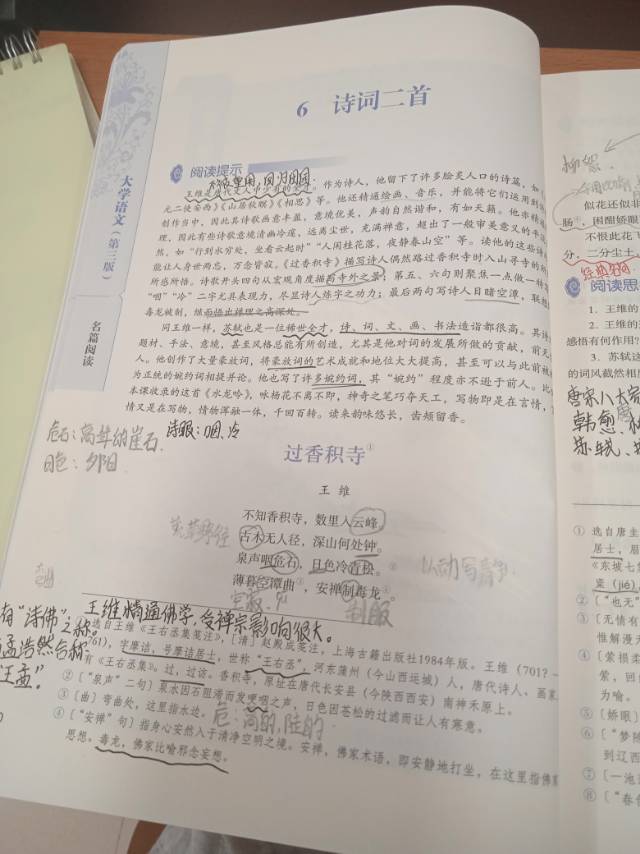 6 诗词二首
大学语文(第三版)
名篇阅读
阅读提示
作为诗人,他留下了许多脍炙人口的诗篇,如
元二使安西》《山居秋暝》《相思》等。他还精通绘画、音乐,并能将它们运用到
制作当中,因此其诗歌画意丰盈,意境优美,声韵自然谐和,有如天籁。
理,因此有些诗歌意境清幽冷邃,远离尘世,充满禅意,超出了一般审美意义的
然,如“行到水穷处,坐看云起时”“人闲桂花落,夜静春山空”等。读他的这些诗
能让人身世两忘,万念皆寂。《过香积寺》描写诗人偶然路过香积寺时入山寻寺的
所感所悟。诗歌开头四句从宏观角度描写寺外之景;第五、六句则聚焦一点做一
“咽”“冷”二字尤具表现力,尽显诗人炼字之功力;最后两句写诗人目睹空潭,联想
毒龙被制,继而悟出禅理之高深处。
同王维一样,苏轼也是一位稀世全才,诗、词、文、画、书法造诣都很高。其诗
题材、手法、意境,甚至风格总能有所创造,尤其是他对词的发展所做的贡献,前无
人。他创作了大量豪放词,将豪放词的艺术成就和地位大大提高,甚至可以与此前被
为正统的婉约词相提并论。他也写了许多婉约词,其“婉约”程度亦不逊于前人。比
本课收录的这首《水龙吟》,咏杨花不离不即,神奇之笔巧夺天工,写物即是在言情,
情又是在写物,情物浑融一体,千回百转。读来韵味悠长,齿颊留香。
危石:高耸的崖石. 诗眼:咽、冷
日色:夕阳
过香积寺①
王 维
不知香积寺,数里入云峰。
古木无人径,深山何处钟。
泉声咽危石,日色冷青松。②
薄暮空潭曲③,安禅制毒龙④。
制服
王维精通佛学,受禅宗影响很大。
有“诗佛”之称。
孟浩然合称
“王孟”.
选自王维《王右丞集笺注》,[清]赵殿成笺注,上海古籍出版社1984年版。王维(701?—
761),字摩诘,号摩诘居士,世称“王右丞”,河东蒲州(今山西运城)人,唐代诗人、画家
有《王右丞集》。过,过访。香积寺,原址在唐代长安县(今陕西西安)南神禾原上。
②〔“泉声”二句〕泉水因石阻滞而发哽咽之声,日色因苍松的过滤而让人有寒意。
③〔曲〕弯曲处,这里指水边。
危:高的,陡的
④〔“安禅”句〕指身心安然入于清净空明之境。安禅,佛家术语,即安静地打坐,在这里指佛
思想。毒龙,佛家比喻邪念妄想。
似花还似非
肠④,困酣娇眼
不恨此花飞
分,二分尘土
阅读思
1. 王维的
2. 王维的
感悟有何作用?
3. 苏轼这
的词风截然相反
唐宋八大家
韩愈、
苏轼、
① 选自唐圭
居士,眉
《东坡七
瓷(jié)
②〔“也无”
③〔无情有
惟解漫天
④〔萦损柔
萦,回
为喻。
⑤〔娇眼〕
⑥〔“梦随
到辽西
⑦〔一池
⑧〔“春